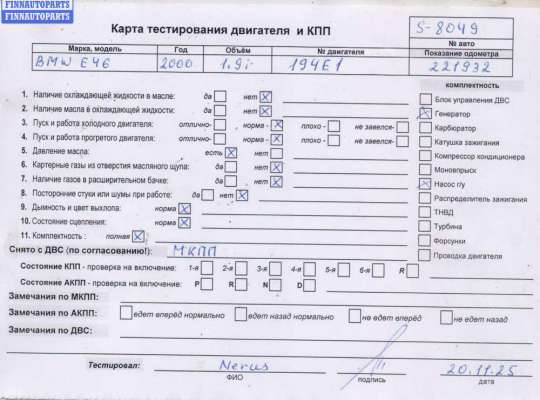 FINNAUTOPARTS
FINNAUTOPARTS
Карта тестирования двигателя и КПП
S-8049
№ авто
Марка, модель Год Объём № двигателя Показание одометра
BMW E46 2000 1.9i 194E1 221932
комплектность
1. Наличие охлаждающей жидкости в масле: да нет
2. Наличие масла в охлаждающей жидкости: да нет
3. Пуск и работа холодного двигателя: отлично- норма - плохо - не завелся-
4. Пуск и работа прогретого двигателя: отлично- норма - плохо - не завелся-
5. Давление масла: есть нет
6. Картерные газы из отверстия масляного щупа: да нет
7. Наличие газов в расширительном бачке: да нет
8. Посторонние стуки или шумы при работе: да нет
9. Дымность и цвет выхлопа: норма
10. Состояние сцепления: норма
11. Комплектность : полная
Блок управления ДВС
Генератор
Карбюратор
Катушка зажигания
Компрессор кондиционера
Моновпрыск
Насос г/у
Распределитель зажигания
ТНВД
Турбина
Форсунки
Проводка двигателя
Снято с ДВС (по согласованию!): МКПП
Состояние КПП - проверка на включение: 1-я 2-я 3-я 4-я 5-я 6-я R
Состояние АКПП - проверка на включение: P R N D
Замечания по МКПП:
Замечания по АКПП: едет вперёд нормально едет назад нормально не едет вперёд не едет назад
Замечания по ДВС:
Тестировал: Nerus 20.11.25
ФИО подпись дата